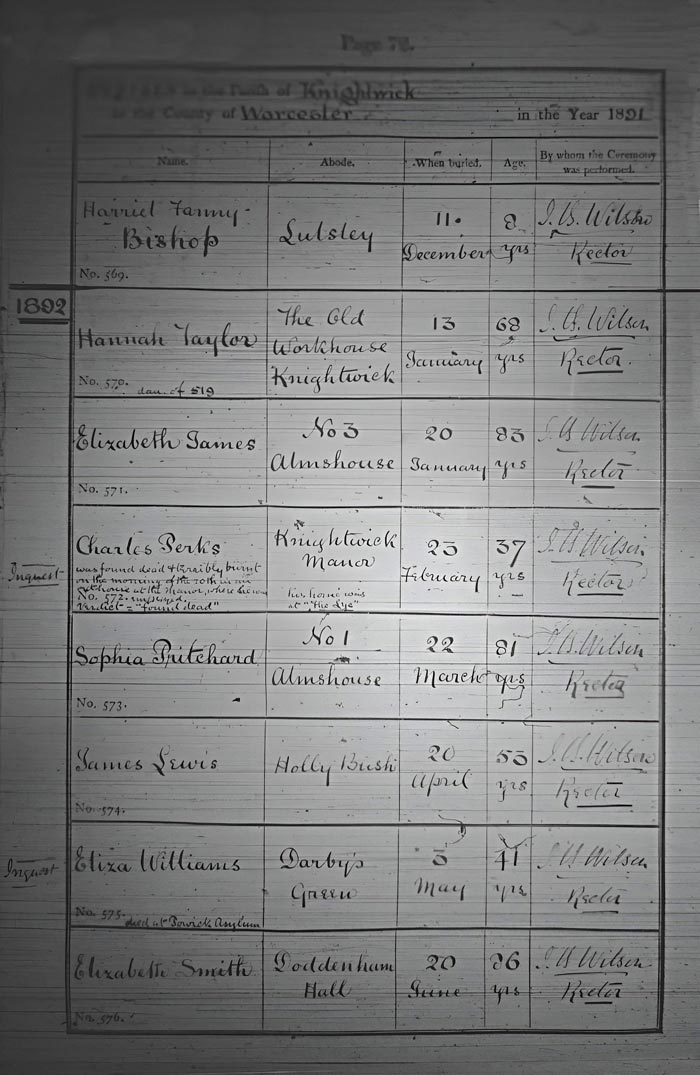 Page 72.
BURIALS in the Parish of Knightwick
in the County of Worcester in the Year 1891
Name. Abode. When buried. Age. By whom the Ceremony was performed.
Harriet Fanny 11. 8 J. B. Wilson
Bishop Lulsley December yrs Rector
No. 569.
1892
Hannah Taylor The Old 13 68 J. B. Wilson
Workhouse January yrs Rector.
No. 570. Knightwick
dau. of 519
Elizabeth James No 3 20 83 J B Wilson
Almshouse January yrs Rector
No. 571.
Charles Perks Knightwick 23 37 J. B. Wilson
Manor February yrs Rector
Inquest
was found dead & terribly burnt
on the morning of the 20th in an
outhouse at the Manor, where he was
No. 572. employed. his home was
Verdict = "found dead" at "the Lye"
Sophia Pritchard No 1 22 81 J. B. Wilson
Almshouse March yrs Rector
No. 573.
James Lewis Holly Bush 20 53 J. B. Wilson
April yrs Rector
No. 574.
Inquest
Eliza Williams Darby's 3 41 J B Wilson
Green May yrs Rector
No. 575.
died at Powick Asylum
Elizabeth Smith Doddenham 20 86 J B Wilson
Hall June yrs Rector
No. 576.